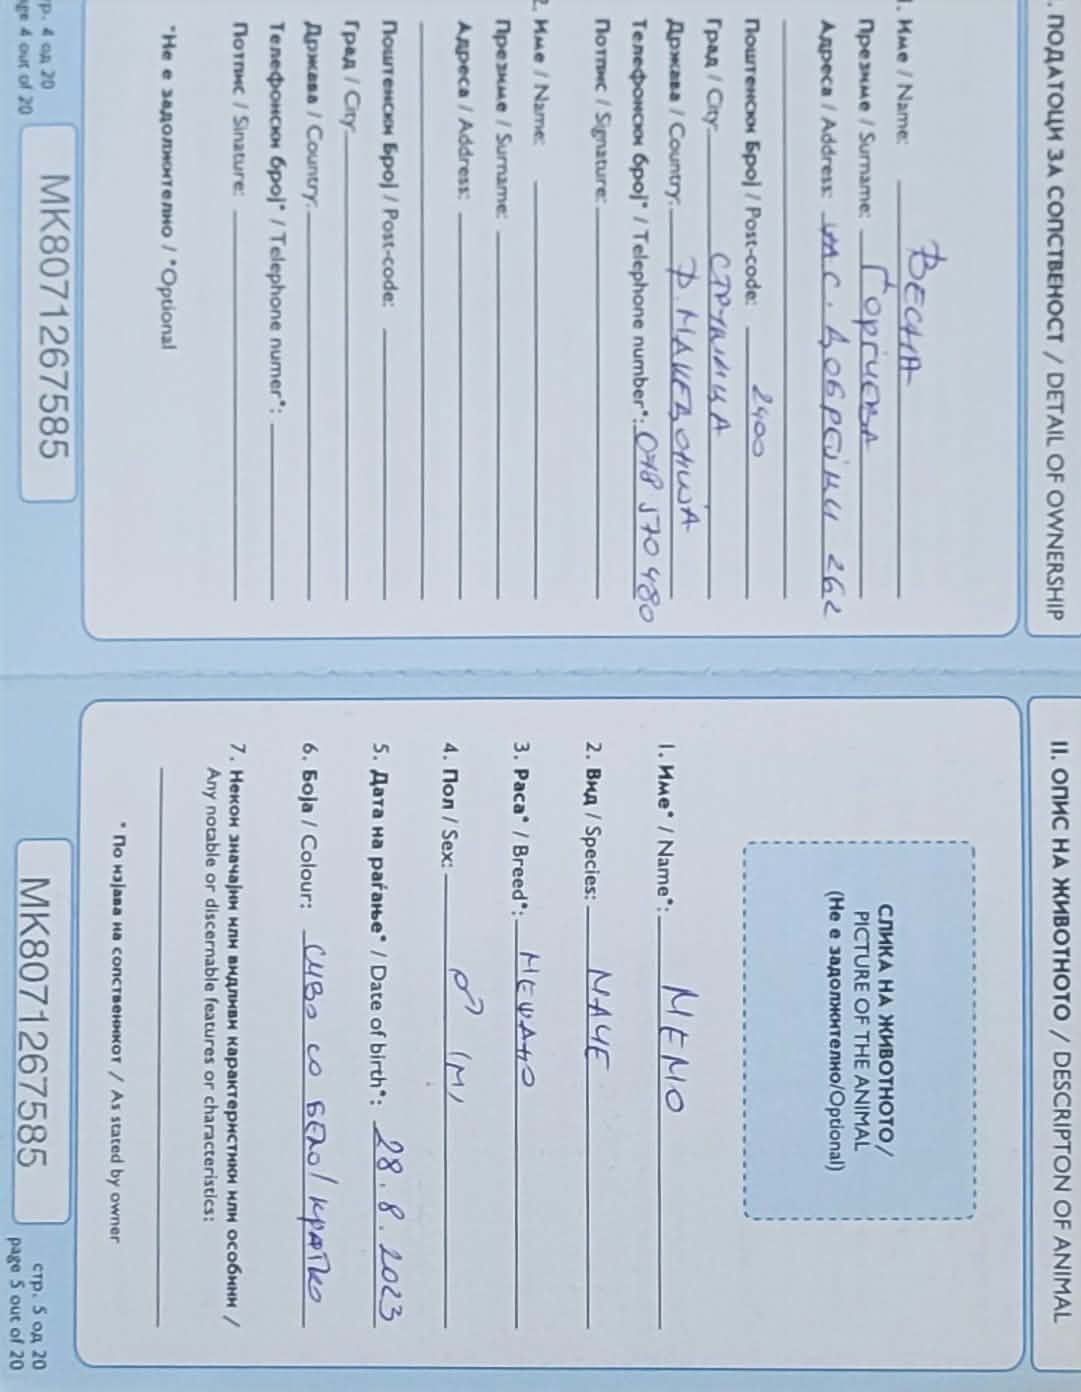 . ПОДАТОЦИ ЗА СОПСТВЕНОСТ / DETAIL OF OWNERSHIP
1. Име / Name: ВЕСНА
Презиме / Surname: Ѓорѓиева
Адреса / Address: ул С. ДОБРЕЈЦИ 262
Поштенски Број / Post-code: 2400
Град / City: СТРУМИЦА
Држава / Country: Р. МАКЕДОНИЈА
Телефонски број* / Telephone number*: 078 570 480
Потпис / Signature:
2. Име / Name:
Презиме / Surname:
Адреса / Address:
Поштенски Број / Post-code:
Град / City:
Држава / Country:
Телефонски број* / Telephone numer*:
Потпис / Sinature:
*Не е задолжително / *Optional
MK8071267585
тр. 4 од 20
ge 4 out of 20
II. ОПИС НА ЖИВОТНОТО / DESCRIPTON OF ANIMAL
СЛИКА НА ЖИВОТНОТО/
PICTURE OF THE ANIMAL
(Не е задолжително/Optional)
1. Име* / Name*: МЕМО
2. Вид / Species: МАЧЕ
3. Раса* / Breed*: МЕШАНО
4. Пол / Sex: ♂ (М)
5. Дата на раѓање* / Date of birth*: 28.8.2023
6. Боја / Colour: СИВО СО БЕЛО/КРАТКО
7. Некои значајни или видливи карактеристики или особини /
Any notable or discernable features or characteristics:
* По изјава на сопственикот / As stated by owner
MK8071267585
стр. 5 од 20
page 5 out of 20